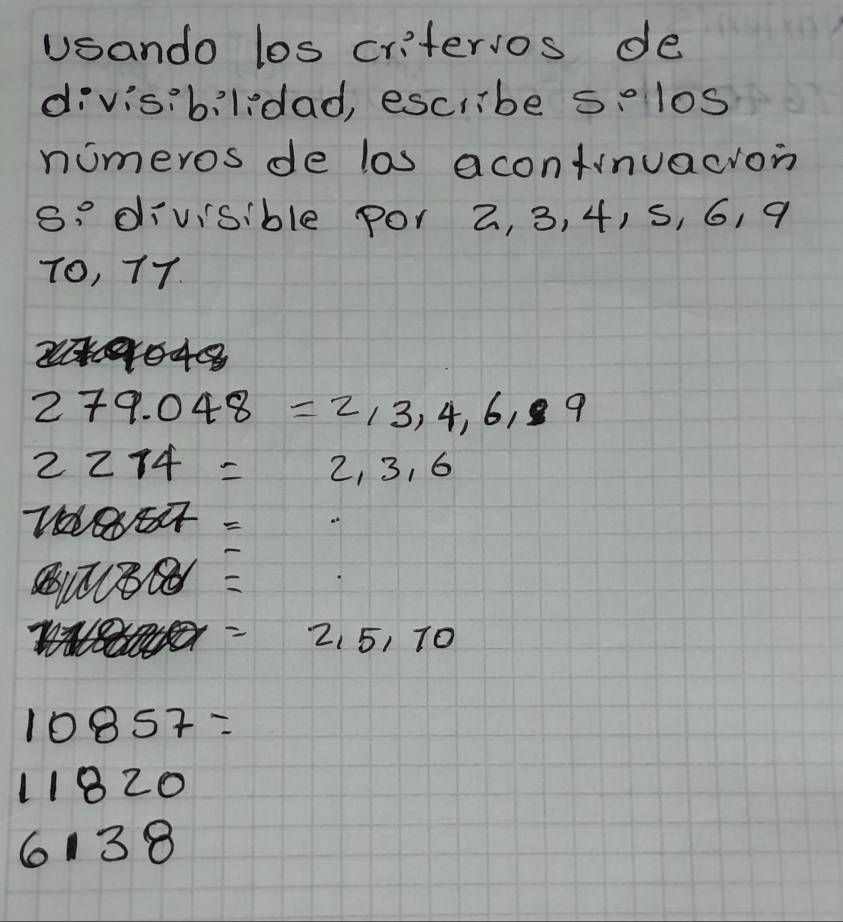 usando los criterios de
divisibilidad, escribe si los
números de las acontinuación
si divisible por 2, 3, 4, 5, 6, 9
10, 11.
279048
279.048 = 2, 3, 4, 6, 9
2214 = 2, 3, 6
=
=
= 2, 5, 10
10857 =
11820
6138